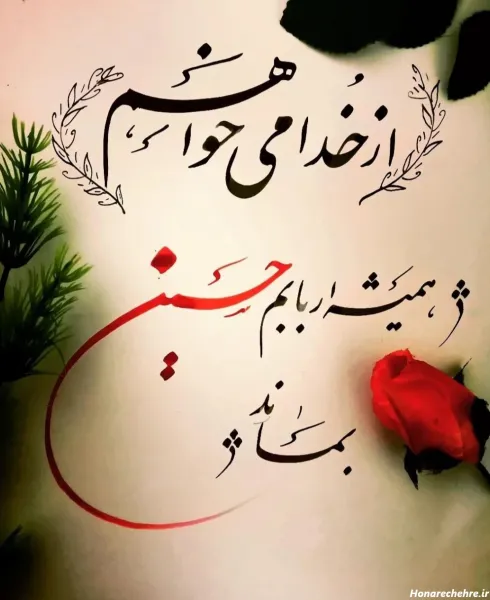 از خُدا می خواهم
همیشه اربابم حسین
بماند
Honarechehre.ir